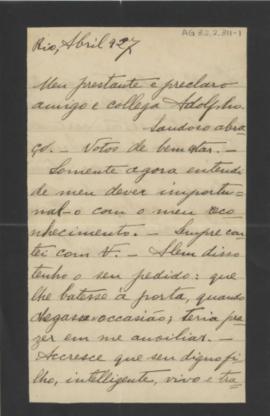 AG 3.2.2.311-1
Rio, Abril 927
Meu prestante e preclaro
amigo e collega Adolpho.
Saudoso abra-
ço. – Votos de bem estar. –
Somente agora entendi
de meu dever importu-
nal-o com o meu reco-
nhecimento. – Sempre con-
tei com V. – Alem disso
tenho o seu pedido: que
lhe batesse á porta, quando
chegasse occasião; teria pra-
zer em me auxiliar. –
Accresce que seu digno fi-
lho, intelligente, vivo e tra-